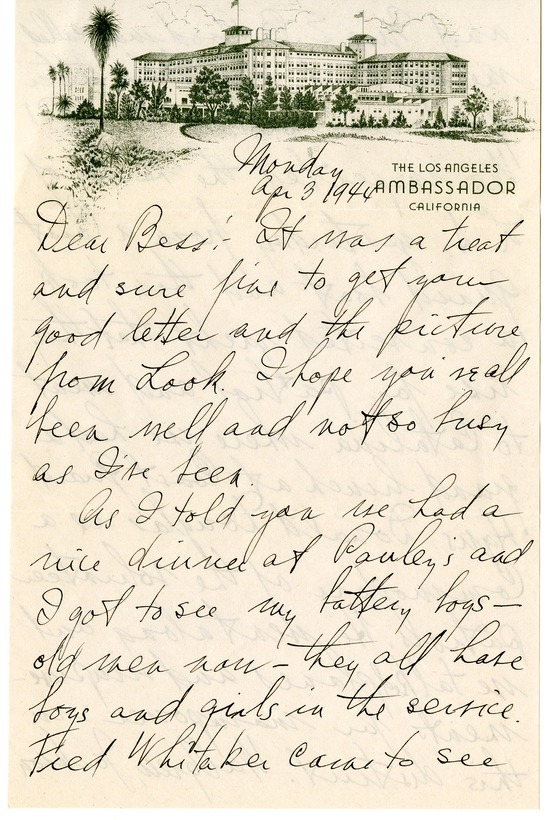 Monday
Apr 3 1944
THE LOS ANGELES
AMBASSADOR
CALIFORNIA
Dear Bess:- It was a treat
and sure fine to get your
good letter and the picture
from Look. I hope you've all
been well and not so busy
as I've been.
As I told you we had a
nice dinner at Pauley's and
I got to see my battery boys—
old men now— they all have
boys and girls in the service.
Fred Whitaker came to see